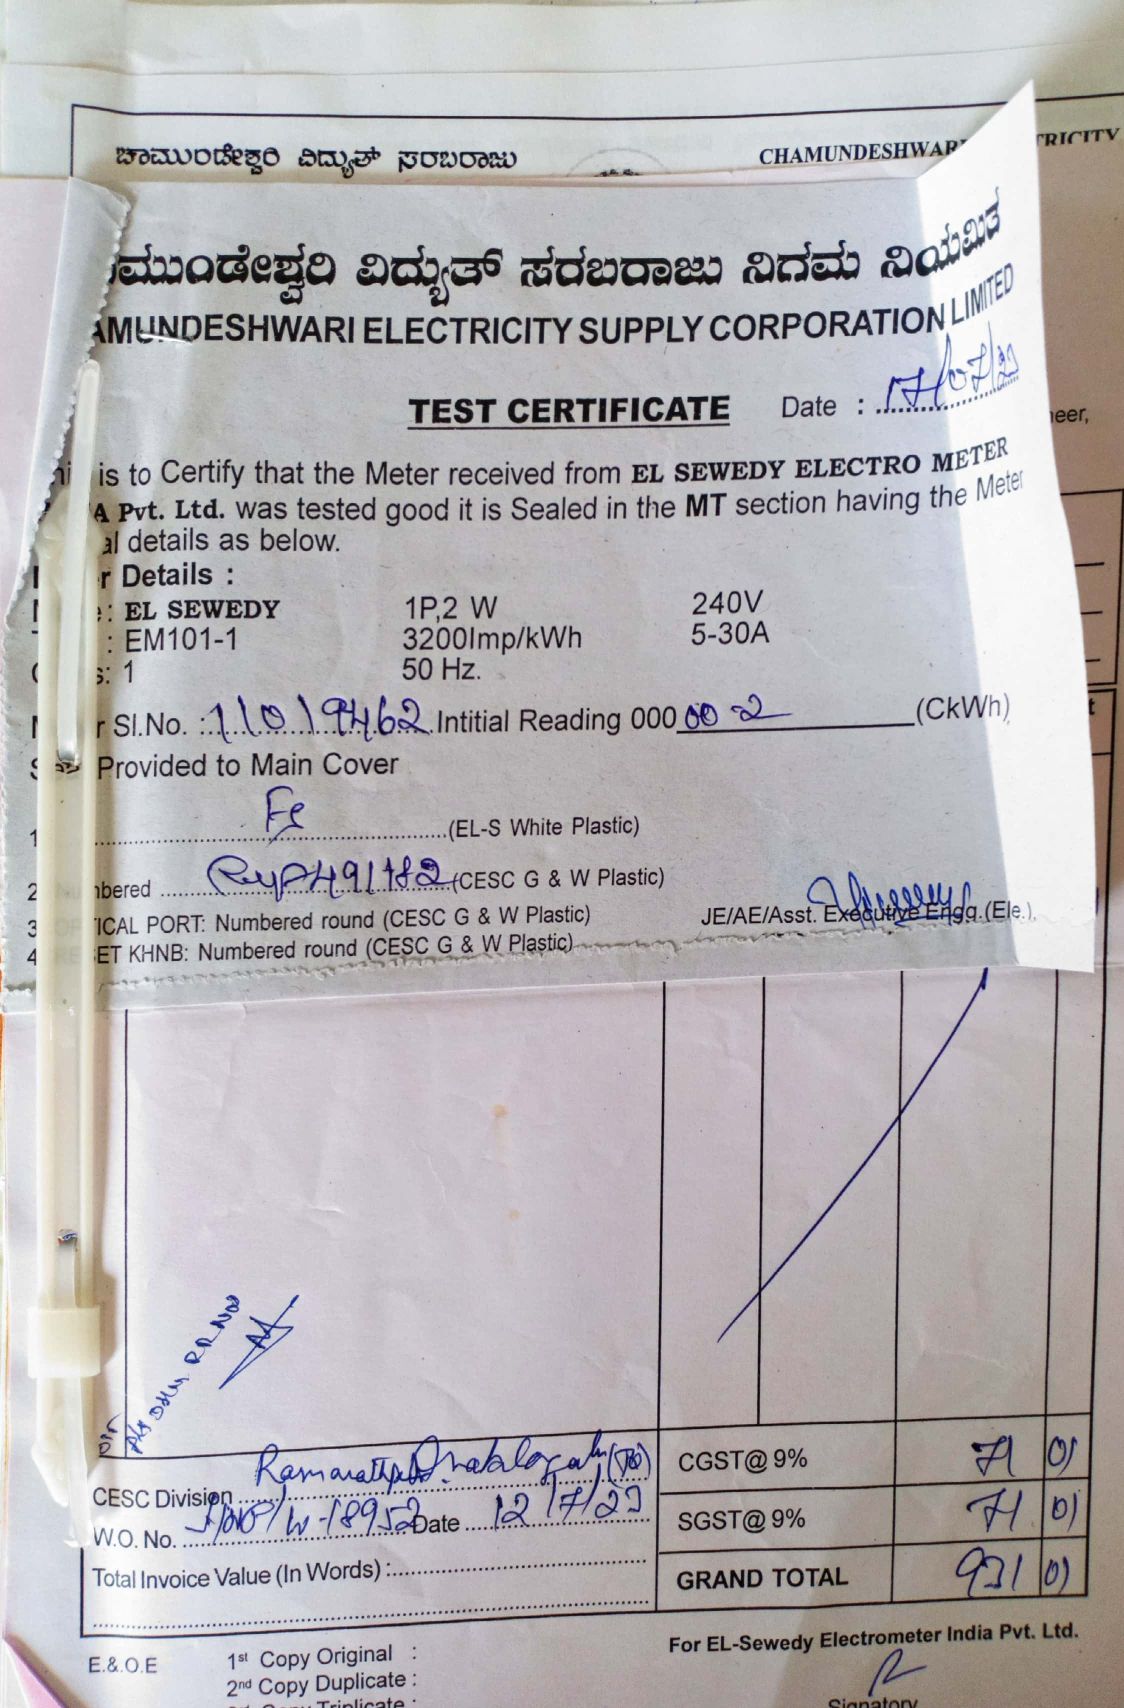 ಚಾಮುಂಡೇಶ್ವರಿ ವಿದ್ಯುತ್ ಸರಬರಾಜು
CHAMUNDESHWARI
TRICITY
ಮುಂಡೇಶ್ವರಿ ವಿದ್ಯುತ್ ಸರಬರಾಜು ನಿಗಮ ನಿಯಮಿತ
AMUNDESHWARI ELECTRICITY SUPPLY CORPORATION LIMITED
TEST CERTIFICATE Date : 17/07/23
neer,
is to Certify that the Meter received from EL SEWEDY ELECTRO METER
A Pvt. Ltd. was tested good it is Sealed in the MT section having the Meter
al details as below.
r Details :
: EL SEWEDY 1P,2 W 240V
: EM101-1 3200Imp/kWh 5-30A
s: 1 50 Hz.
r Sl.No. : 11019462 Intitial Reading 000 00 2 (CkWh)
Provided to Main Cover
1 (EL-S White Plastic)
2 nbered 491782 (CESC G & W Plastic)
3 TICAL PORT: Numbered round (CESC G & W Plastic) JE/AE/Asst. Executive Engg.(Ele.),
4 ET KHNB: Numbered round (CESC G & W Plastic)
CGST@ 9% 71 01
CESC Division
SGST@ 9% 71 01
W.O. No. W-18952 Date 12/7/23
Total Invoice Value (In Words) :
GRAND TOTAL 931 01
For EL-Sewedy Electrometer India Pvt. Ltd.
E.&.O.E 1st Copy Original :
2nd Copy Duplicate :
Copy Triplicate :
Signatory